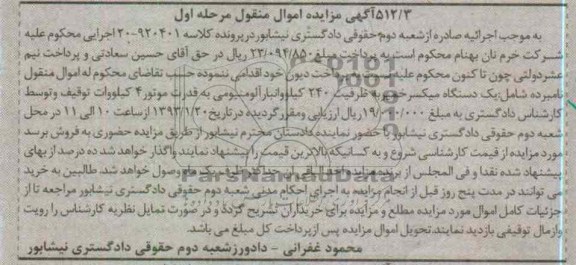 ۵۱۲/۳آگهی مزایده اموال منقول مرحله اول
به موجب اجرائیه صادره ازشعبه دوم حقوقی دادگستری نیشابور در پرونده کلاسه ۹۲۰۴۰۱-۲۰ اجرایی محکوم علیه
شرکت خرم نان بهنام محکوم است به پرداخت مبلغ ۲۳/۰۹۴/۸۵۰ ریال در حق آقای حسین سعادتی و پرداخت نیم
عشردولتی چون تا کنون محکوم علیه پرداخت دیون خود اقدامی ننموده حسب تقاضای محکوم له اموال منقول
نامبرده شامل: یک دستگاه میکسرخمیر به ظرفیت ۲۴۰ کیلووانبار آلومینیومی به قدرت موتور ۴ کیلووات توقیف وتوسط
کارشناس دادگستری به مبلغ ریال ارزیابی ومقرر گردیده در تاریخ ۱۳۹۳/۱/۲۰ ازساعت ۱۰ الی ۱۱ در محل
شعبه دوم حقوقی دادگستری نیشابور با حضور نماینده دادستان محترم نیشابور از طریق مزایده حضوری به فروش برسد
مورد مزایده از قیمت کارشناسی شروع و به کسانیکه بالاترین قیمت را پیشنهاد نمایند واگذار خواهد شد ده درصد از بهای
پیشنهاد شده نقدا و فی المجلس از برنده مزایده حداکثر یک ماه وصول خواهد شد. طالبین به خرید
می توانند در مدت پنج روز قبل از انجام مزایده به اجرای احکام مدنی شعبه دوم حقوقی دادگستری نیشابور مراجعه تا از
جزئیات کامل اموال مورد مزایده مطلع و مزایده برای خریداران تشریح گردد و در صورت تمایل نظریه کارشناس را رویت
وازمال توقیفی بازدید نمایند.تحویل اموال مزایده پس ازپرداخت کل مبلغ می باشد.
محمود غفرانی - دادورزشعبه دوم حقوقی دادگستری نیشابور